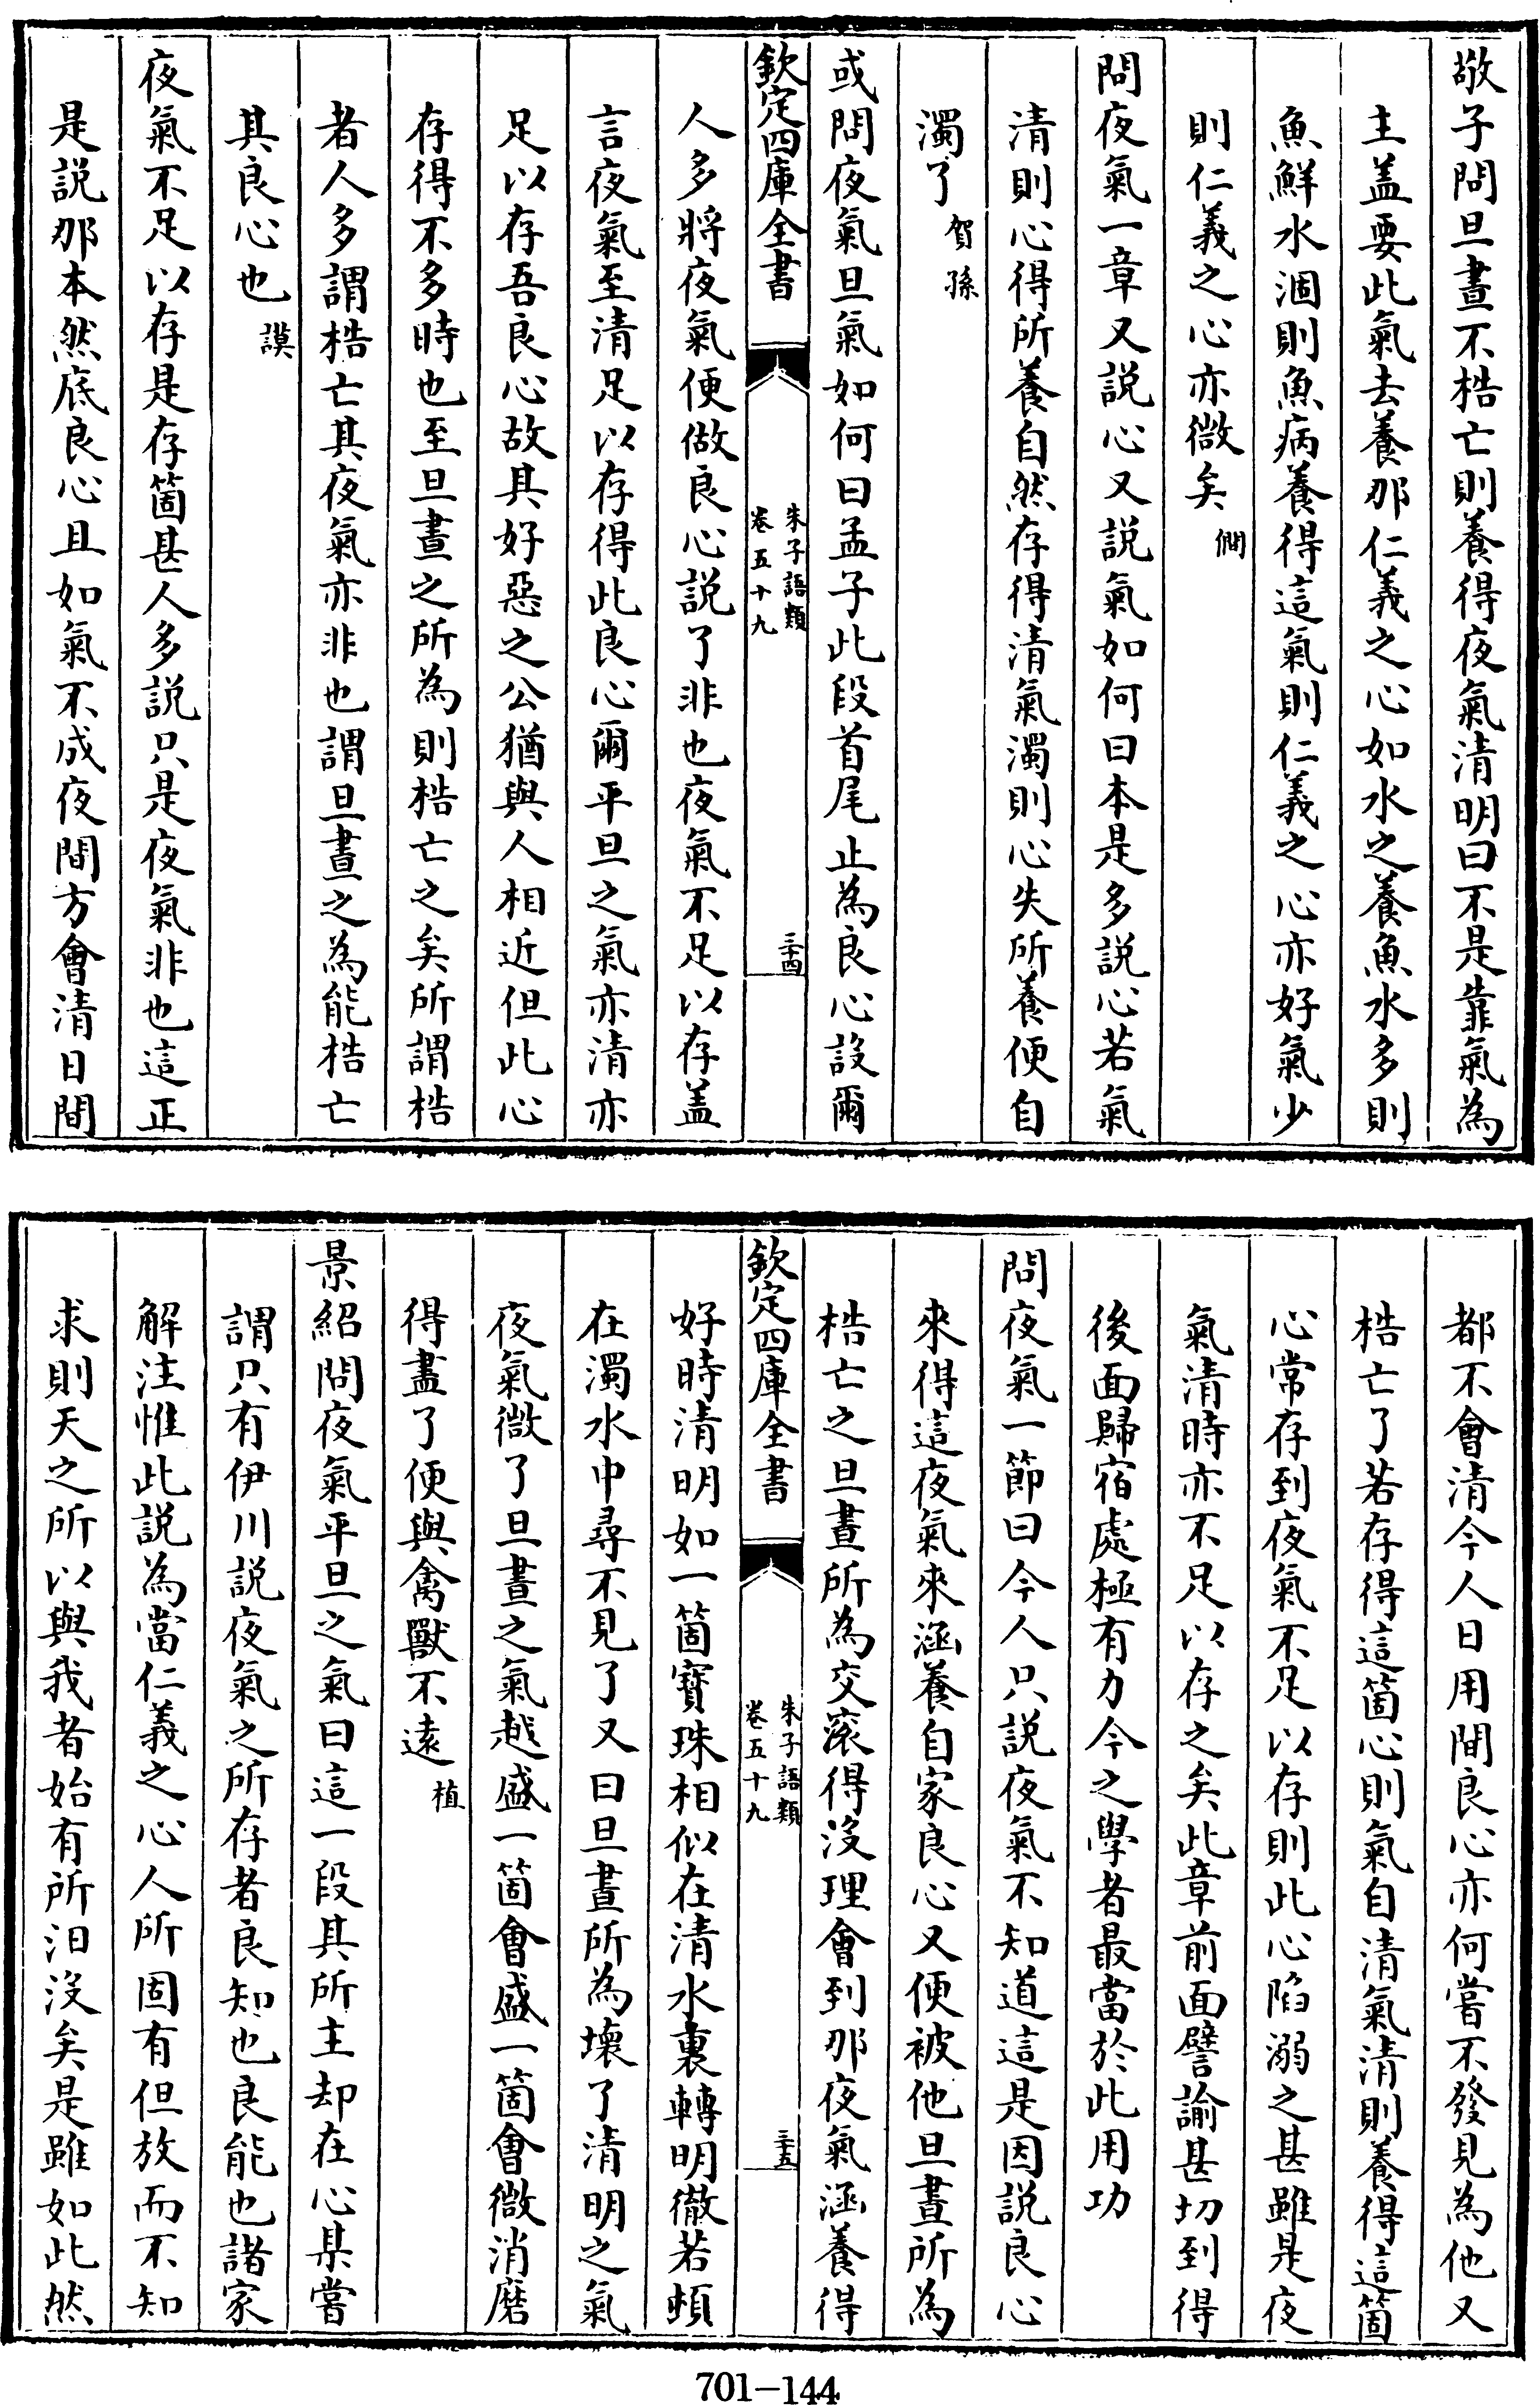 敬子問旦晝不梏亡則養得夜氣清明曰不是靠氣為
主盖要此氣去養那仁義之心如水之養魚水多則
魚鮮水涸則魚病養得這氣則仁義之心亦好氣少
則仁義之心亦微矣 僩
問夜氣一章又説心又説氣如何曰本是多説心若氣
清則心得所養自然存得清氣濁則心失所養便自
濁了 賀孫
或問夜氣旦氣如何曰孟子此段首尾止為良心設爾
欽定四庫全書
朱子語類
卷五十九
三十四
人多將夜氣便做良心説了非也夜氣不足以存盖
言夜氣至清足以存得此良心爾平旦之氣亦清亦
足以存吾良心故其好惡之公猶與人相近但此心
存得不多時也至旦晝之所為則梏亡之矣所謂梏
者人多謂梏亡其夜氣亦非也謂旦晝之為能梏亡
其良心也 謨
夜氣不足以存是存箇甚人多説只是夜氣非也這正
是説那本然底良心且如氣不成夜間方會清日間
都不會清今人日用間良心亦何嘗不發見為他又
梏亡了若存得這箇心則氣自清氣清則養得這箇
心常存到夜氣不足以存則此心陷溺之甚雖是夜
氣清時亦不足以存之矣此章前面譬諭甚切到得
後面歸宿處極有力今之學者最當於此用功
問夜氣一節曰今人只説夜氣不知道這是因説良心
來得這夜氣來涵養自家良心又便被他旦晝所為
梏亡之旦晝所為交滚得沒理會到那夜氣涵養得
欽定四庫全書
朱子語類
卷五十九
三十五
好時清明如一箇寳珠相似在清水裏轉明徹若頓
在濁水中尋不見了又曰旦晝所為壞了清明之氣
夜氣微了旦晝之氣越盛一箇會盛一箇會微消磨
得盡了便與禽獸不逺 植
景紹問夜氣平旦之氣曰這一段其所主却在心某嘗
謂只有伊川説夜氣之所存者良知也良能也諸家
解注惟此説為當仁義之心人所固有但放而不知
求則天之所以與我者始有所汨沒矣是雖如此然
701-144